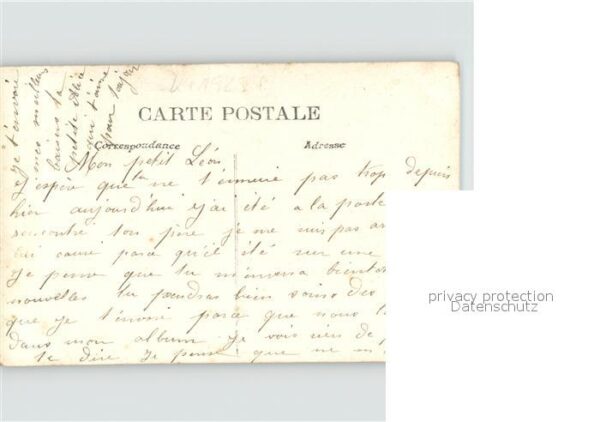 Je t'envoie
mes meilleurs
baisers ta
petite Alice
qui t'aime
pour toujours
CARTE POSTALE
Correspondance Adresse
Mon petit Léon
J'espère que tu ne t'ennuie pas trop depuis
hier aujourd'hui j'ai été a la poste
rencontré ton père je ne me suis pas
lui causé parce qu'il été sur une
Je pense que tu m'envera bientôt
nouvelles tu prendras bien soins des
que je t'envoie parce que nous
dans mon album je vois rien de
te dire Je pense que ne m
privacy protection
Datenschutz